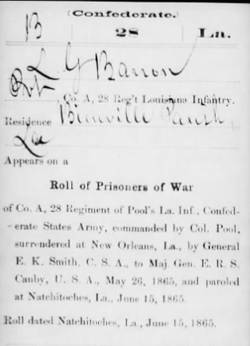 (Confederate.)
B 28 La.
L G Barron
Pvt, Co. A, 28 Reg't Louisiana Infantry.
Residence Bienville Parish
La
Appears on a
Roll of Prisoners of War
of Co. A, 28 Regiment of Pool's La. Inf., Confed-
erate States Army, commanded by Col. Pool,
surrendered at New Orleans, La., by General
E. K. Smith, C. S. A., to Maj. Gen. E. R. S.
Canby, U. S. A., May 26, 1865, and paroled
at Natchitoches, La., June 15, 1865.
Roll dated Natchitoches, La., June 15, 1865.